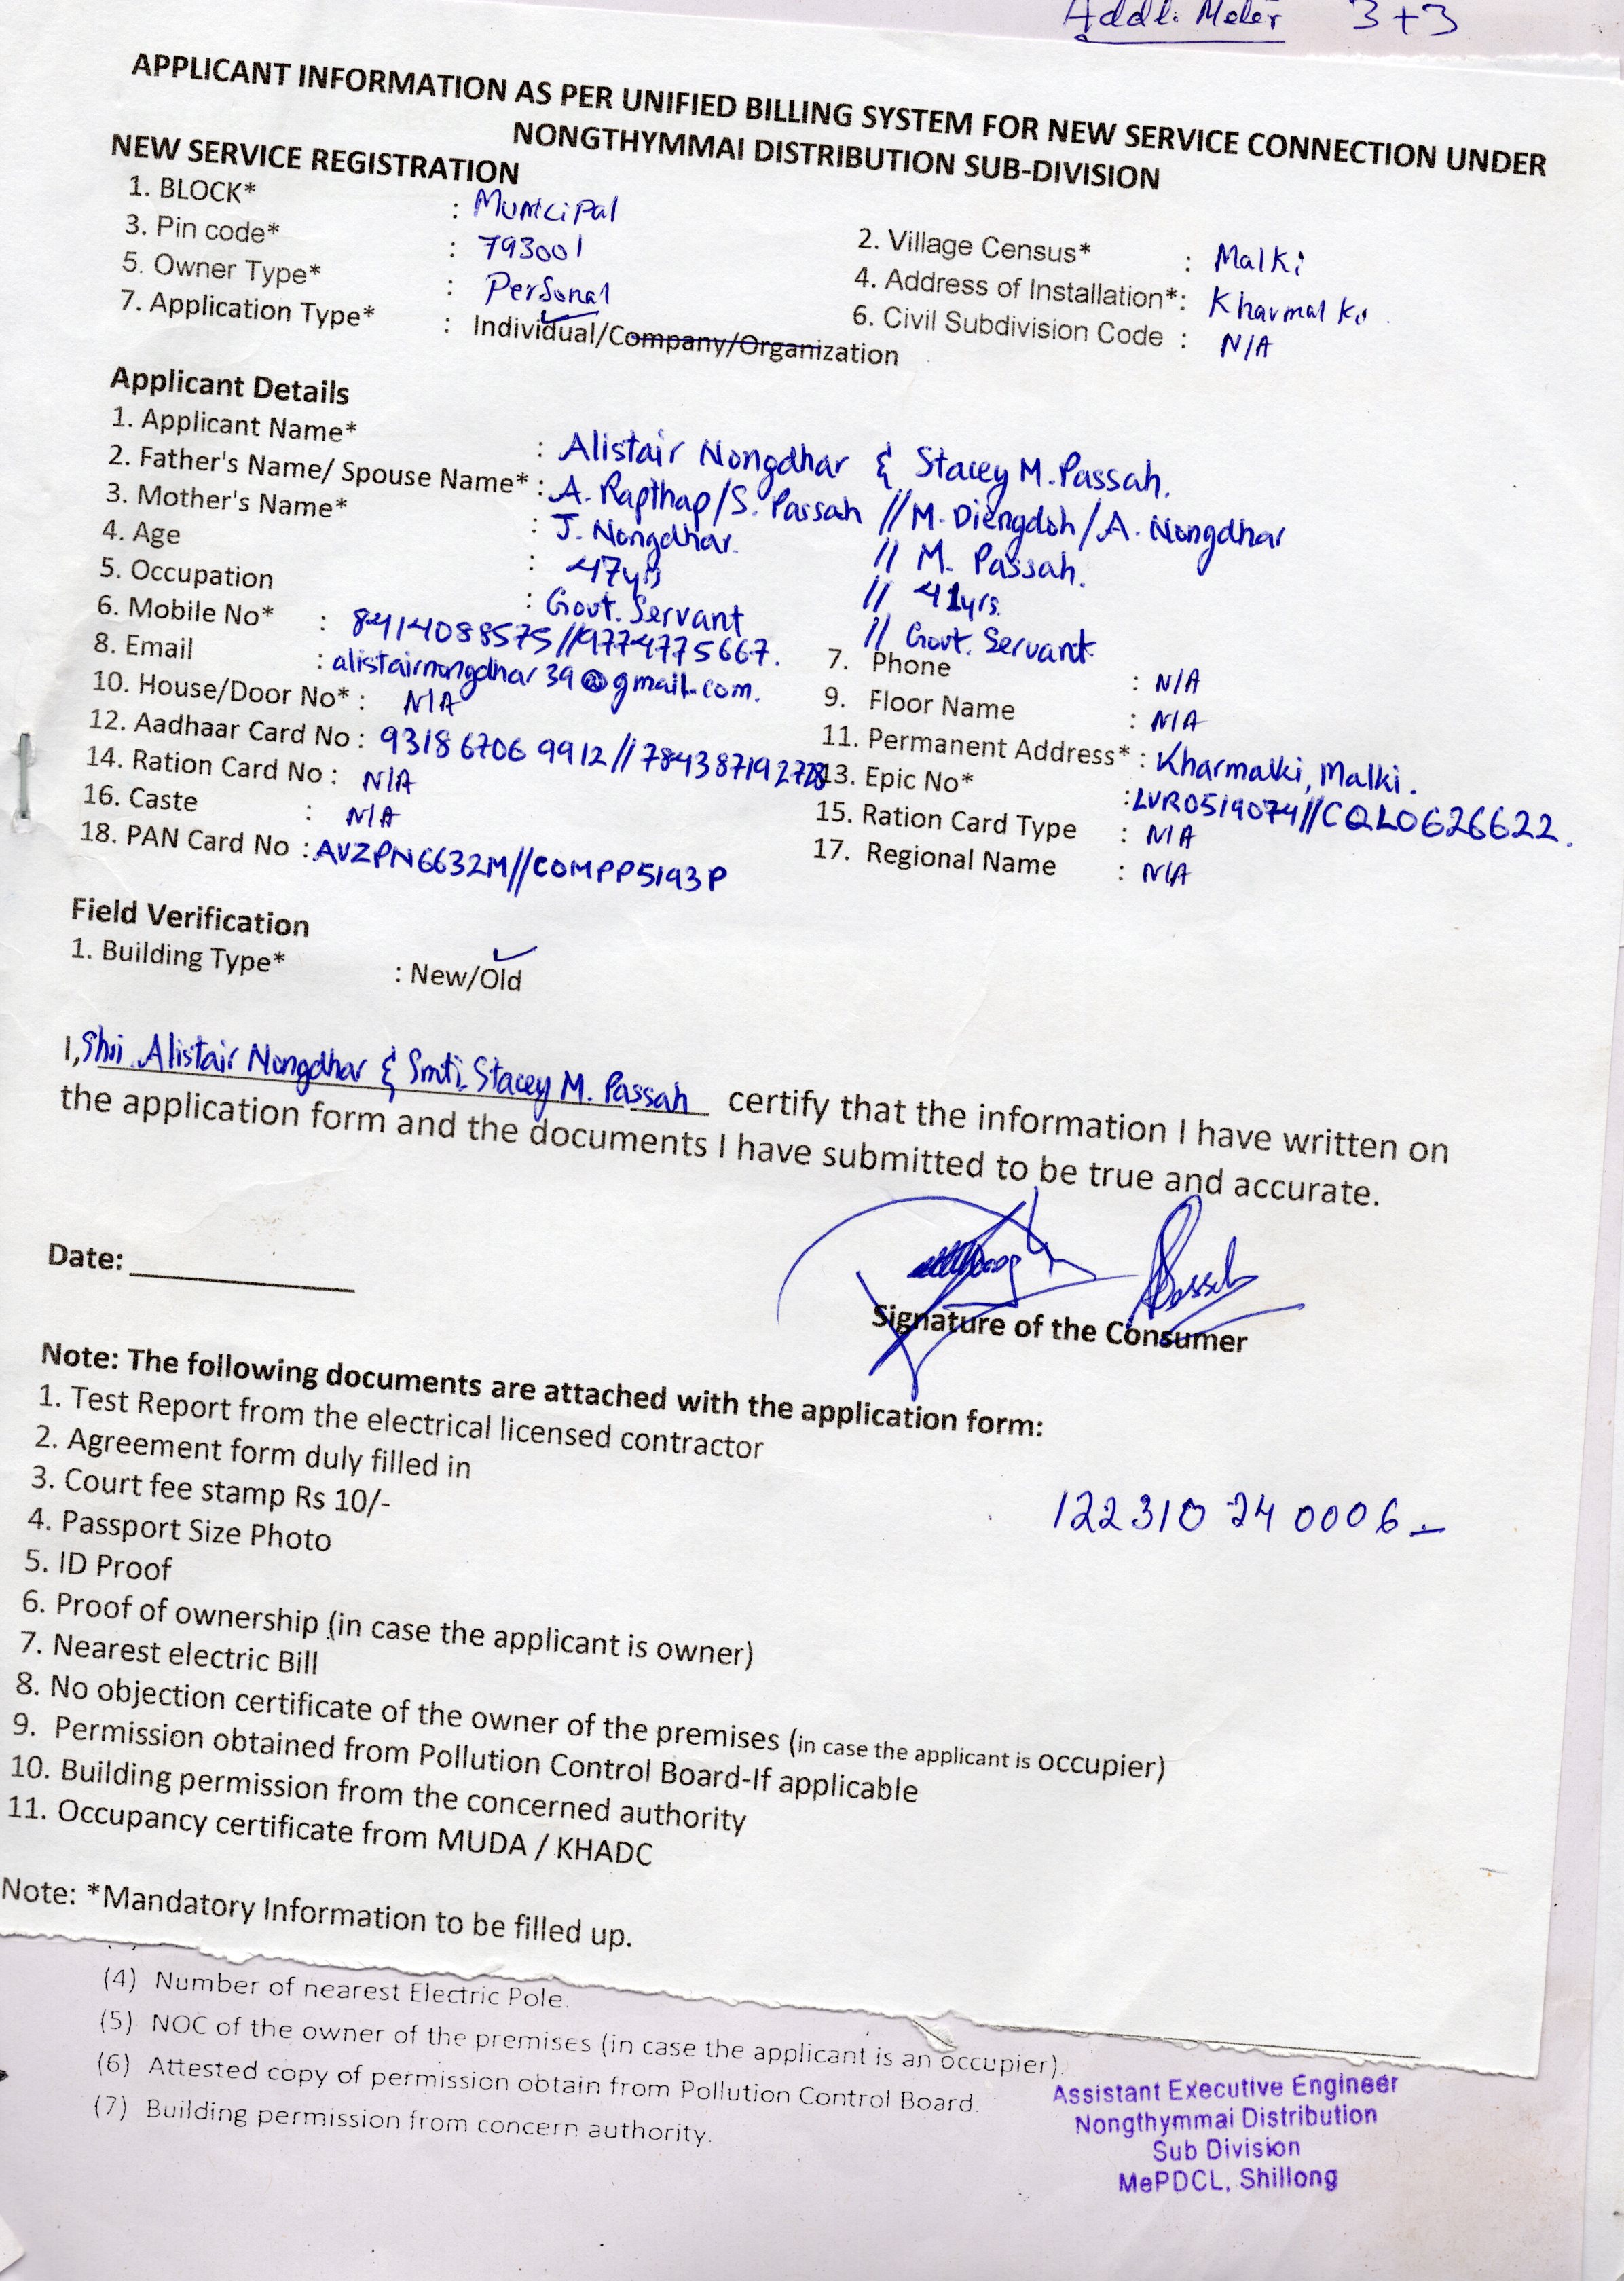 Addl. Meter 3+3
APPLICANT INFORMATION AS PER UNIFIED BILLING SYSTEM FOR NEW SERVICE CONNECTION UNDER
NONGTHYMMAI DISTRIBUTION SUB-DIVISION
NEW SERVICE REGISTRATION
1. BLOCK* : Municipal
2. Village Census* : Malki
3. Pin code* : 793001
4. Address of Installation*: Kharmalki.
5. Owner Type* : Personal
6. Civil Subdivision Code : N/A
7. Application Type* : Individual/Company/Organization
Applicant Details
1. Applicant Name* : Alistair Nongdhar & Stacey M. Passah.
2. Father's Name/ Spouse Name* : A. Rapthap/S. Passah // M. Diengdoh/A. Nongdhar
3. Mother's Name* : J. Nongdhar. // M. Passah.
4. Age : 47yrs // 41yrs.
5. Occupation : Govt. Servant // Govt. Servant
6. Mobile No* : 8414088575//9774775667.
7. Phone : N/A
8. Email : alistairnongdhar39@gmail.com.
9. Floor Name : N/A
10. House/Door No* : N/A
11. Permanent Address* : Kharmalki, Malki.
12. Aadhaar Card No : 9318 6706 9912 // 784387192728
13. Epic No* : LVR0519074//CQL0626622.
14. Ration Card No : N/A
15. Ration Card Type : N/A
16. Caste : N/A
17. Regional Name : N/A
18. PAN Card No : AVZPN6632M//COMPP5193P
Field Verification
1. Building Type* : New/Old
I, Shri. Alistair Nongdhar & Smti. Stacey M. Passah certify that the information I have written on
the application form and the documents I have submitted to be true and accurate.
Date:
Signature of the Consumer
Note: The following documents are attached with the application form:
1. Test Report from the electrical licensed contractor
2. Agreement form duly filled in
3. Court fee stamp Rs 10/-
122310240006
4. Passport Size Photo
5. ID Proof
6. Proof of ownership (in case the applicant is owner)
7. Nearest electric Bill
8. No objection certificate of the owner of the premises (in case the applicant is occupier)
9. Permission obtained from Pollution Control Board-If applicable
10. Building permission from the concerned authority
11. Occupancy certificate from MUDA / KHADC
Note: *Mandatory Information to be filled up.
(4) Number of nearest Electric Pole.
(5) NOC of the owner of the premises (in case the applicant is an occupier).
(6) Attested copy of permission obtain from Pollution Control Board.
(7) Building permission from concern authority.
Assistant Executive Engineer
Nongthymmai Distribution
Sub Division
MePDCL, Shillong